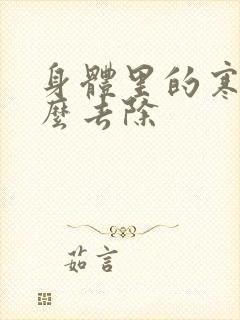 身體里的寒
麼去除
茹言